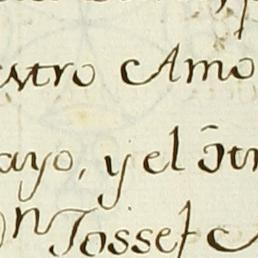 estro Amo
ayo, y el ōtr
Dn Jossef